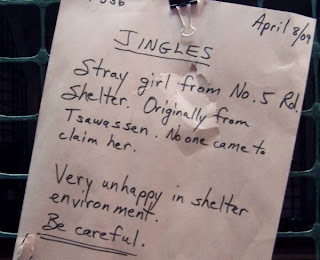 April 8/09
JINGLES
Stray girl from No. 5 Rd.
Shelter. Originally from
Tsawassen. No one came to
claim her.
Very unhappy in shelter
environment.
Be careful.